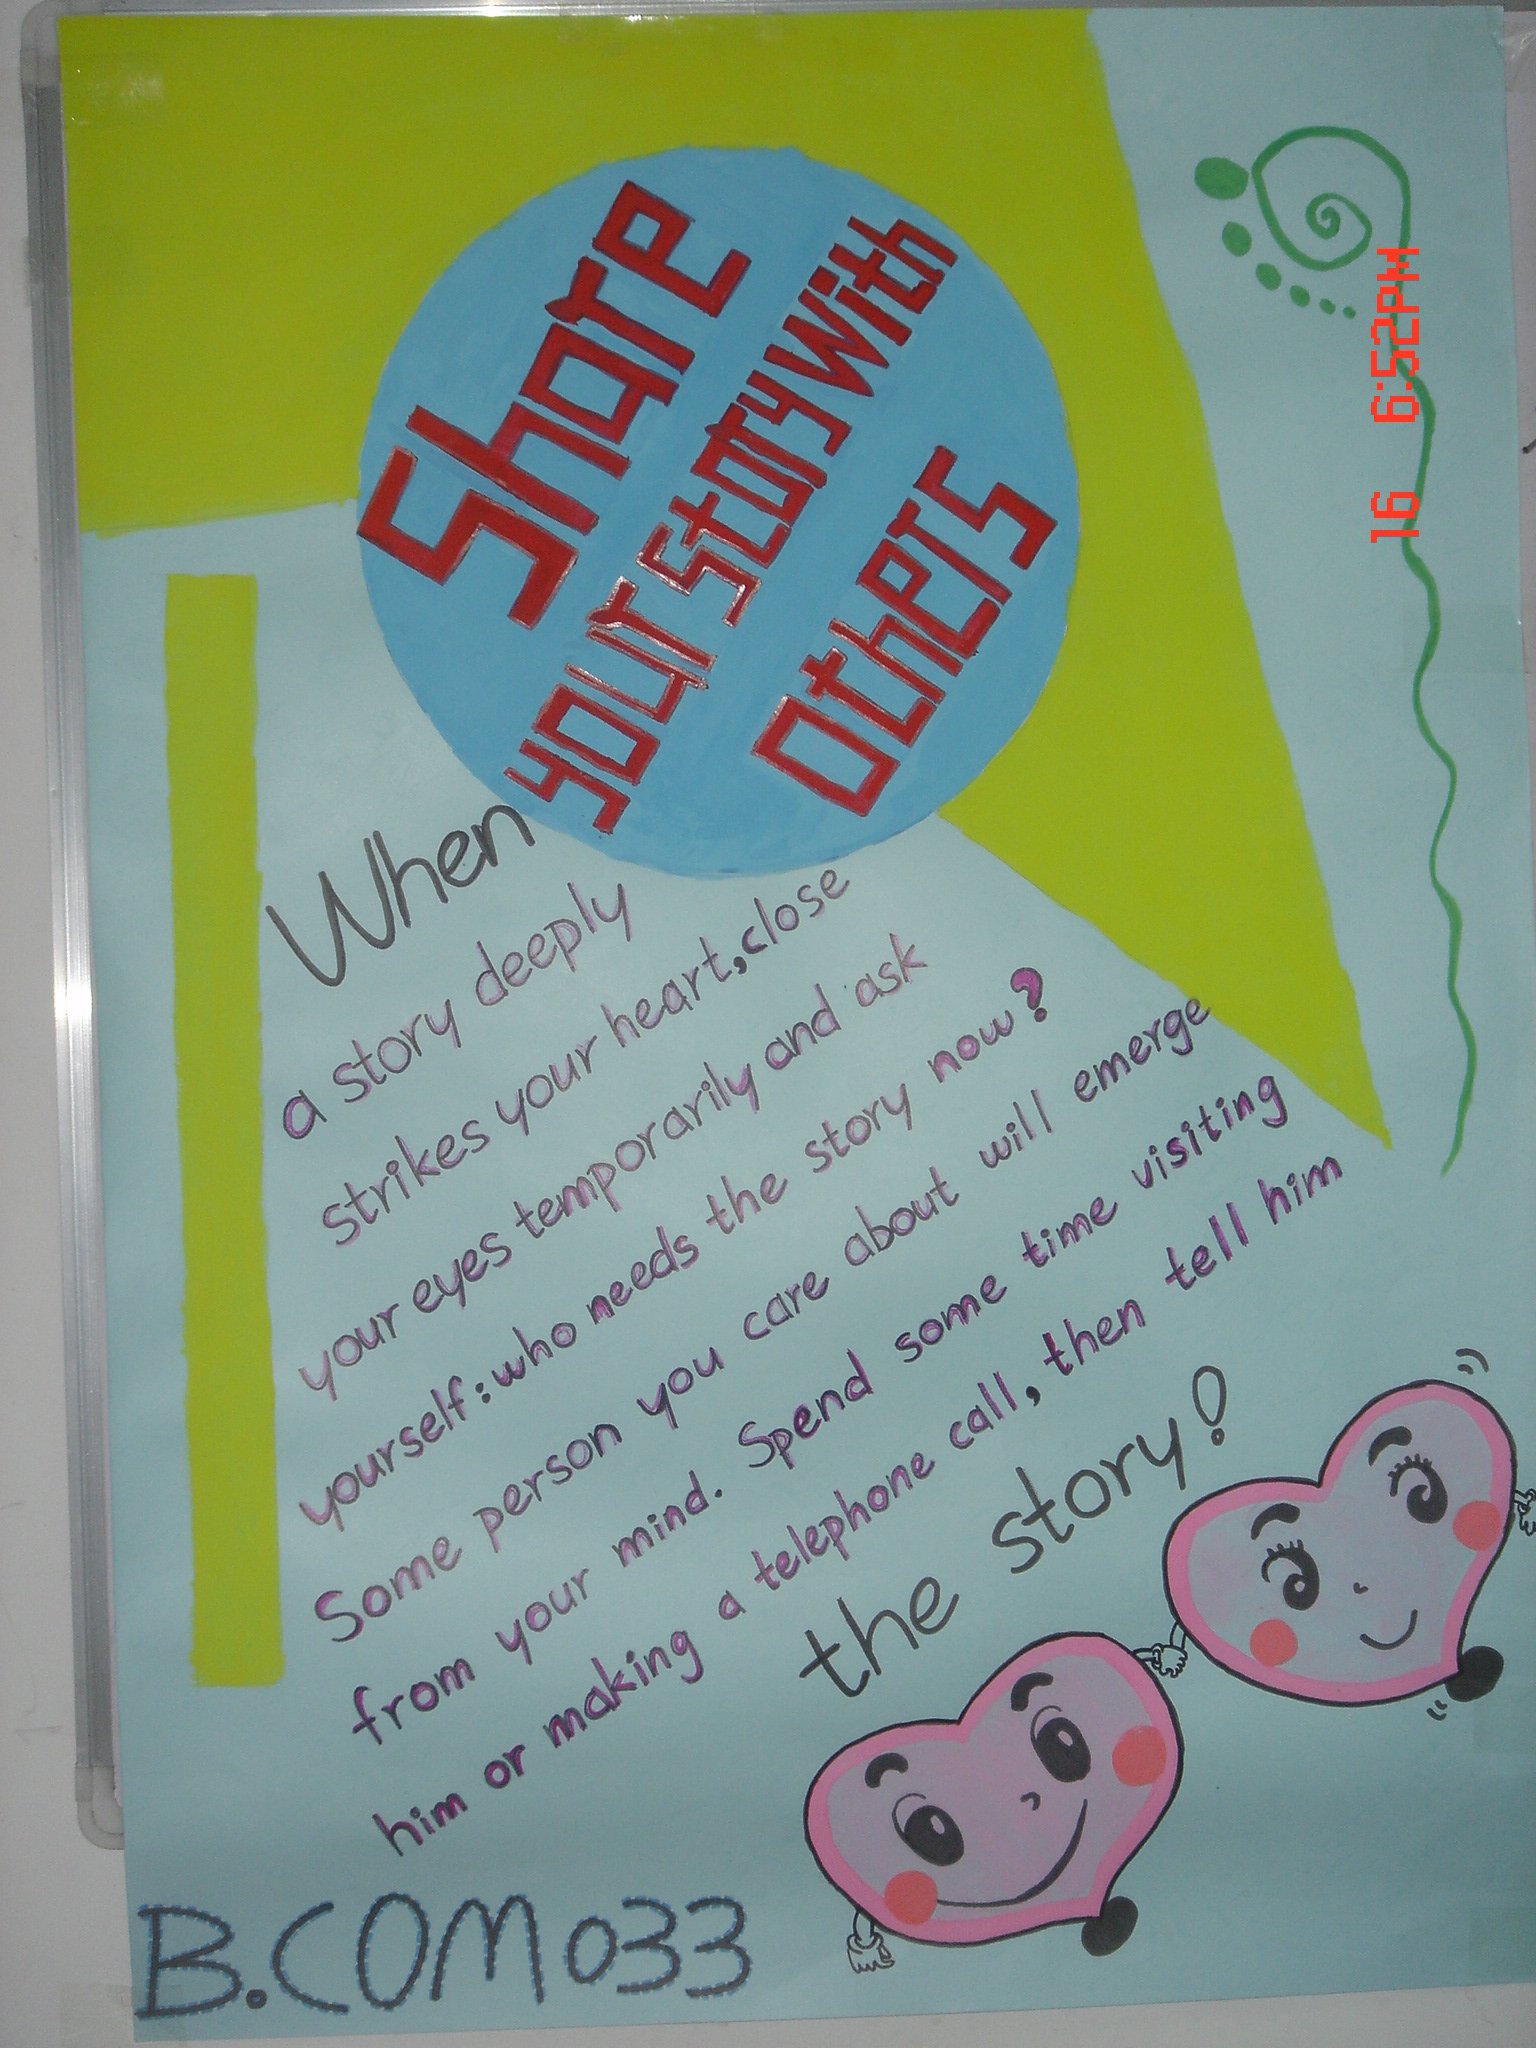 Share
your story with
others
When
a story deeply
strikes your heart,close
your eyes temporarily and ask
yourself:who needs the story now?
Some person you care about will emerge
from your mind. Spend some time visiting
him or making a telephone call, then tell him
the story!
B.COM033
16 6:52PM